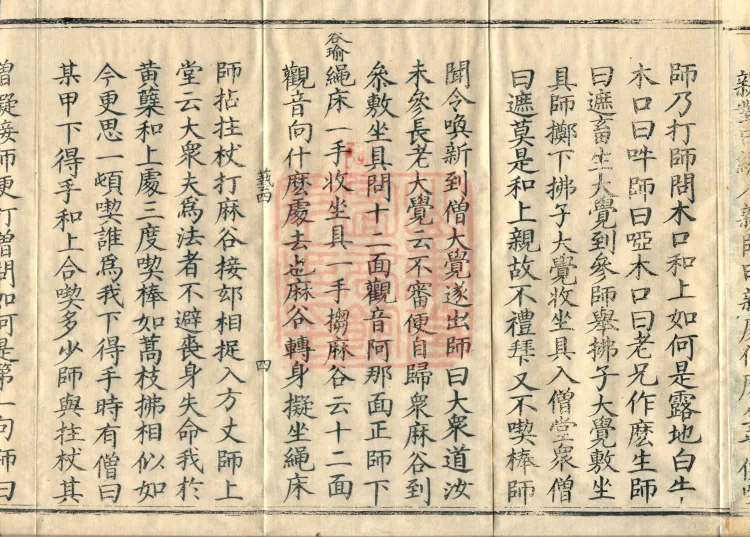 師乃打師問木口和上如何是露地白牛
木口曰吽師曰啞木口曰老兄作麽生師
曰遮畜生大覺到參師舉拂子大覺敷坐
具師擲下拂子大覺收坐具入僧堂衆僧
曰遮莫是和上親故不禮拜又不喫棒師
聞令喚新到僧大覺遂出師曰大衆道汝
未參長老大覺云不審便自歸衆麻谷到
參敷坐具問十二面觀音阿那面正師下
繩床一手收坐具一手搊麻谷云十二面
谷瑜
觀音向什麽處去也麻谷轉身擬坐繩床
四
師拈拄杖打麻谷接却相捉入方丈師上
堂云大衆夫爲法者不避喪身失命我於
黃蘗和上處三度喫棒如蒿枝拂相似如
今更思一頓喫誰爲我下得手時有僧曰
某甲下得手和上合喫多少師與拄杖其
僧擬接師便打僧問如何是第一句師曰